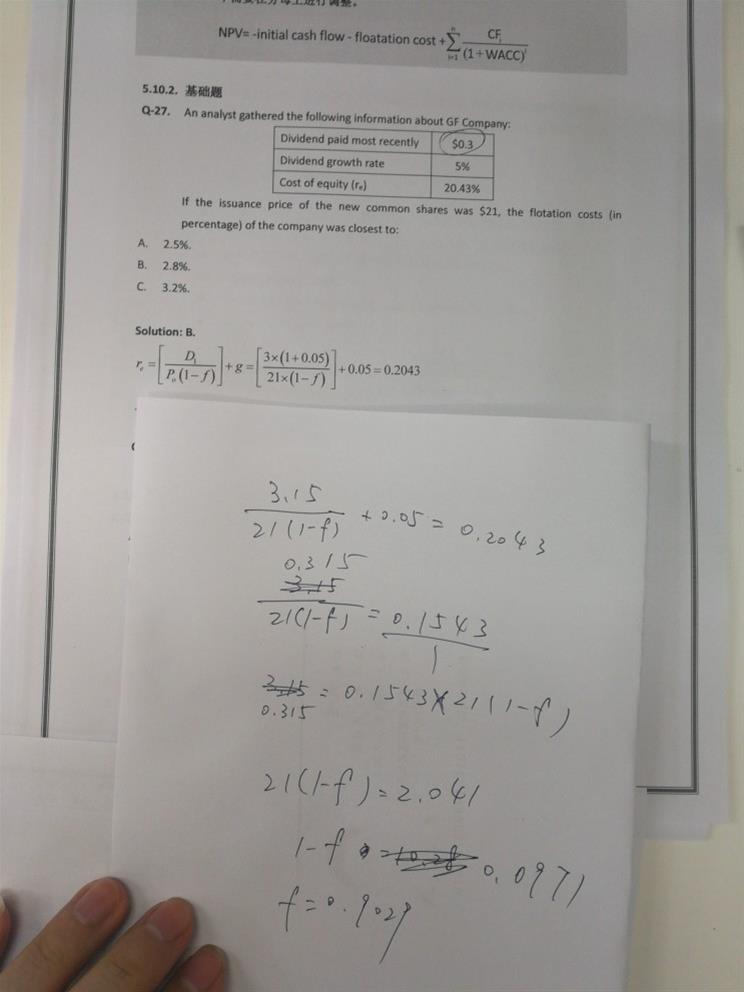 NPV= -initial cash flow - floatation cost + \sum_{i=1}^{n} \frac{CF_i}{(1+WACC)^i}
5.10.2. 基础题
Q-27. An analyst gathered the following information about GF Company:
Dividend paid most recently $0.3
Dividend growth rate 5%
Cost of equity (rₑ) 20.43%
If the issuance price of the new common shares was $21, the flotation costs (in
percentage) of the company was closest to:
A. 2.5%.
B. 2.8%.
C. 3.2%.
Solution: B.
r_e = [\frac{D_1}{P_0(1-f)}] + g = [\frac{3×(1+0.05)}{21×(1-f)}] + 0.05 = 0.2043
\frac{3.15}{21(1-f)} + 0.05 = 0.2043
0.315
3.15
\frac{}{21(1-f)} = \frac{0.1543}{1}
3.15 = 0.1543×21(1-f)
0.315
21(1-f)=2.041
1-f = 0.0971
f=0.9029